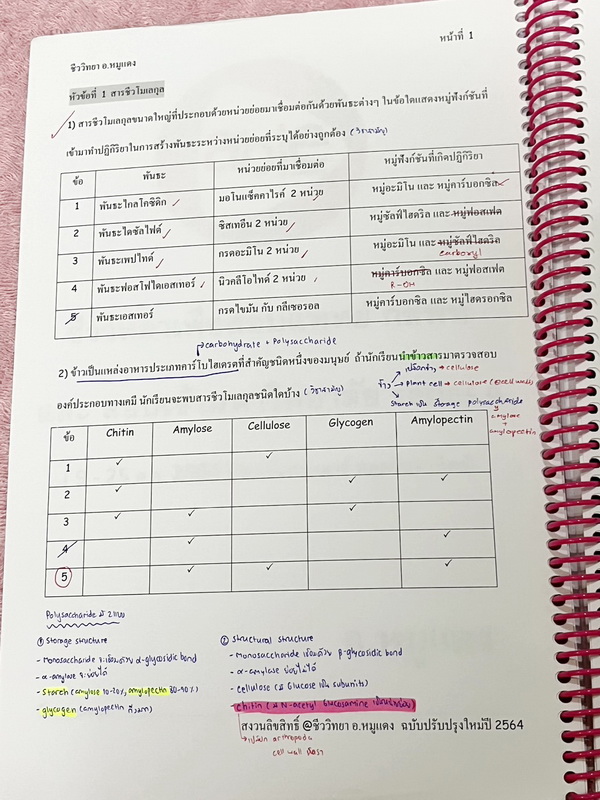 หน้าที่ 1
ชีววิทยา อ.หมูแดง
หัวข้อที่ 1 สารชีวโมเลกุล
1) สารชีวโมเลกุลขนาดใหญ่ที่ประกอบด้วยหน่วยย่อยมาเชื่อมต่อกันด้วยพันธะต่างๆ ในข้อใดแสดงหมู่ฟังก์ชันที่
เข้ามาทำปฏิกิริยาในการสร้างพันธะระหว่างหน่วยย่อยที่ระบุได้อย่างถูกต้อง (วิชาสามัญ)
ข้อ พันธะ หน่วยย่อยที่มาเชื่อมต่อ หมู่ฟังก์ชันที่เกิดปฏิกิริยา
1 พันธะไกลโคซิดิก มอโนแซ็คคาไรค์ 2 หน่วย หมู่อะมิโน และ หมู่คาร์บอกซิล
2 พันธะไดซัลไฟด์ ซิสเทอีน 2 หน่วย หมู่ซัลฟ์ไฮดริล และ หมู่ฟอสเฟต
3 พันธะเพปไทด์ กรดอะมิโน 2 หน่วย หมู่อะมิโน และ หมู่ซัลฟ์ไฮดริล
carboxyl
4 พันธะฟอสโฟไดเอสเทอร์ นิวคลีโอไทด์ 2 หน่วย หมู่คาร์บอกซิล และ หมู่ฟอสเฟต
R-OH
5 พันธะเอสเทอร์ กรดไขมัน กับ กลีเซอรอล หมู่คาร์บอกซิล และ หมู่ไฮดรอกซิล
carbohydrate + Polysaccharide
2) ข้าวเป็นแหล่งอาหารประเภทคาร์โบไฮเดรตที่สำคัญชนิดหนึ่งของมนุษย์ ถ้านักเรียนนำข้าวสารมาตรวจสอบ
เปลือกข้าว → cellulose
ข้าว → Plant cell → cellulose (cell wall)
องค์ประกอบทางเคมี นักเรียนจะพบสารชีวโมเลกุลชนิดใดบ้าง (วิชาสามัญ)
Starch เป็น storage polysaccharide
amylose
+
amylopectin
ข้อ Chitin Amylose Cellulose Glycogen Amylopectin
1 ✓ ✓
2 ✓ ✓ ✓
3 ✓ ✓ ✓
4 ✓ ✓
5 ✓ ✓ ✓
Polysaccharide มี 2 แบบ
① Storage structure
- Monosaccharide จะเชื่อมด้วย α-glycosidic bond
- α-amylase จะย่อยได้
- Starch (amylose 10-20%, amylopectin 80-90%)
- glycogen (amylopectin
② Structural structure
- Monosaccharide เชื่อมด้วย β-glycosidic bond
- α-amylase ย่อยไม่ได้
- cellulose (มี Glucose เป็น subunits)
- Chitin (มี N-acetyl Glucosamine
สงวนลิขสิทธิ์ @ชีววิทยา อ.หมูแดง ฉบับปรับปรุงใหม่ปี 2564
เปลือก arthropods
cell wall